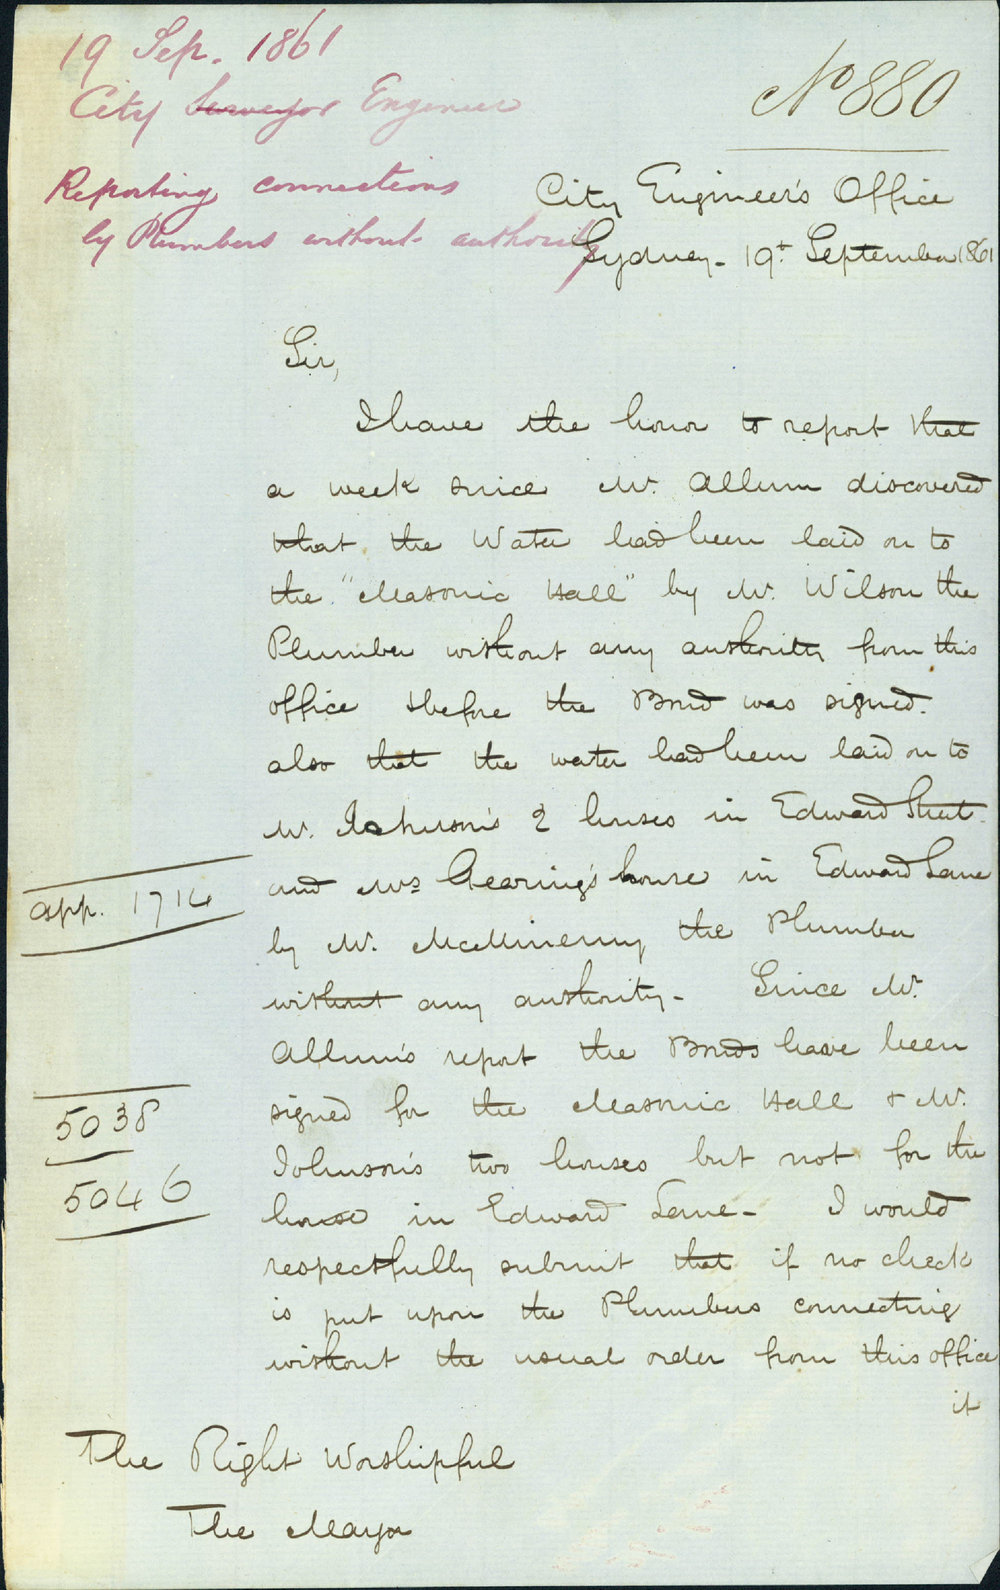 19 Sep. 1861
City Surveyor Engineer
Reporting connections
by Plumbers without authority
No 880
City Engineer's Office
Sydney - 19t September 1861
Sir,
I have the honor to report that
a week since Mr. Allum discovered
that the Water had been laid on to
the "Masonic Hall" by Mr. Wilson the
Plumber without any authority from this
office & before the Bond was signed.
also that the water had been laid on to
Mr. Johnson's 2 houses in Edward Street.
and Mrs Gearing's house in Edward Lane
app. 1714
by Mr. McMinerny the Plumber
without any authority - Since Mr.
Allum's report the Bonds have been
signed for the Masonic Hall & Mr.
5038
Johnson's two houses but not for the
5046
house in Edward Lane - I would
respectfully submit that if no check
is put upon the Plumbers connecting
without the usual order from this office
it
The Right Worshipful
The Mayor